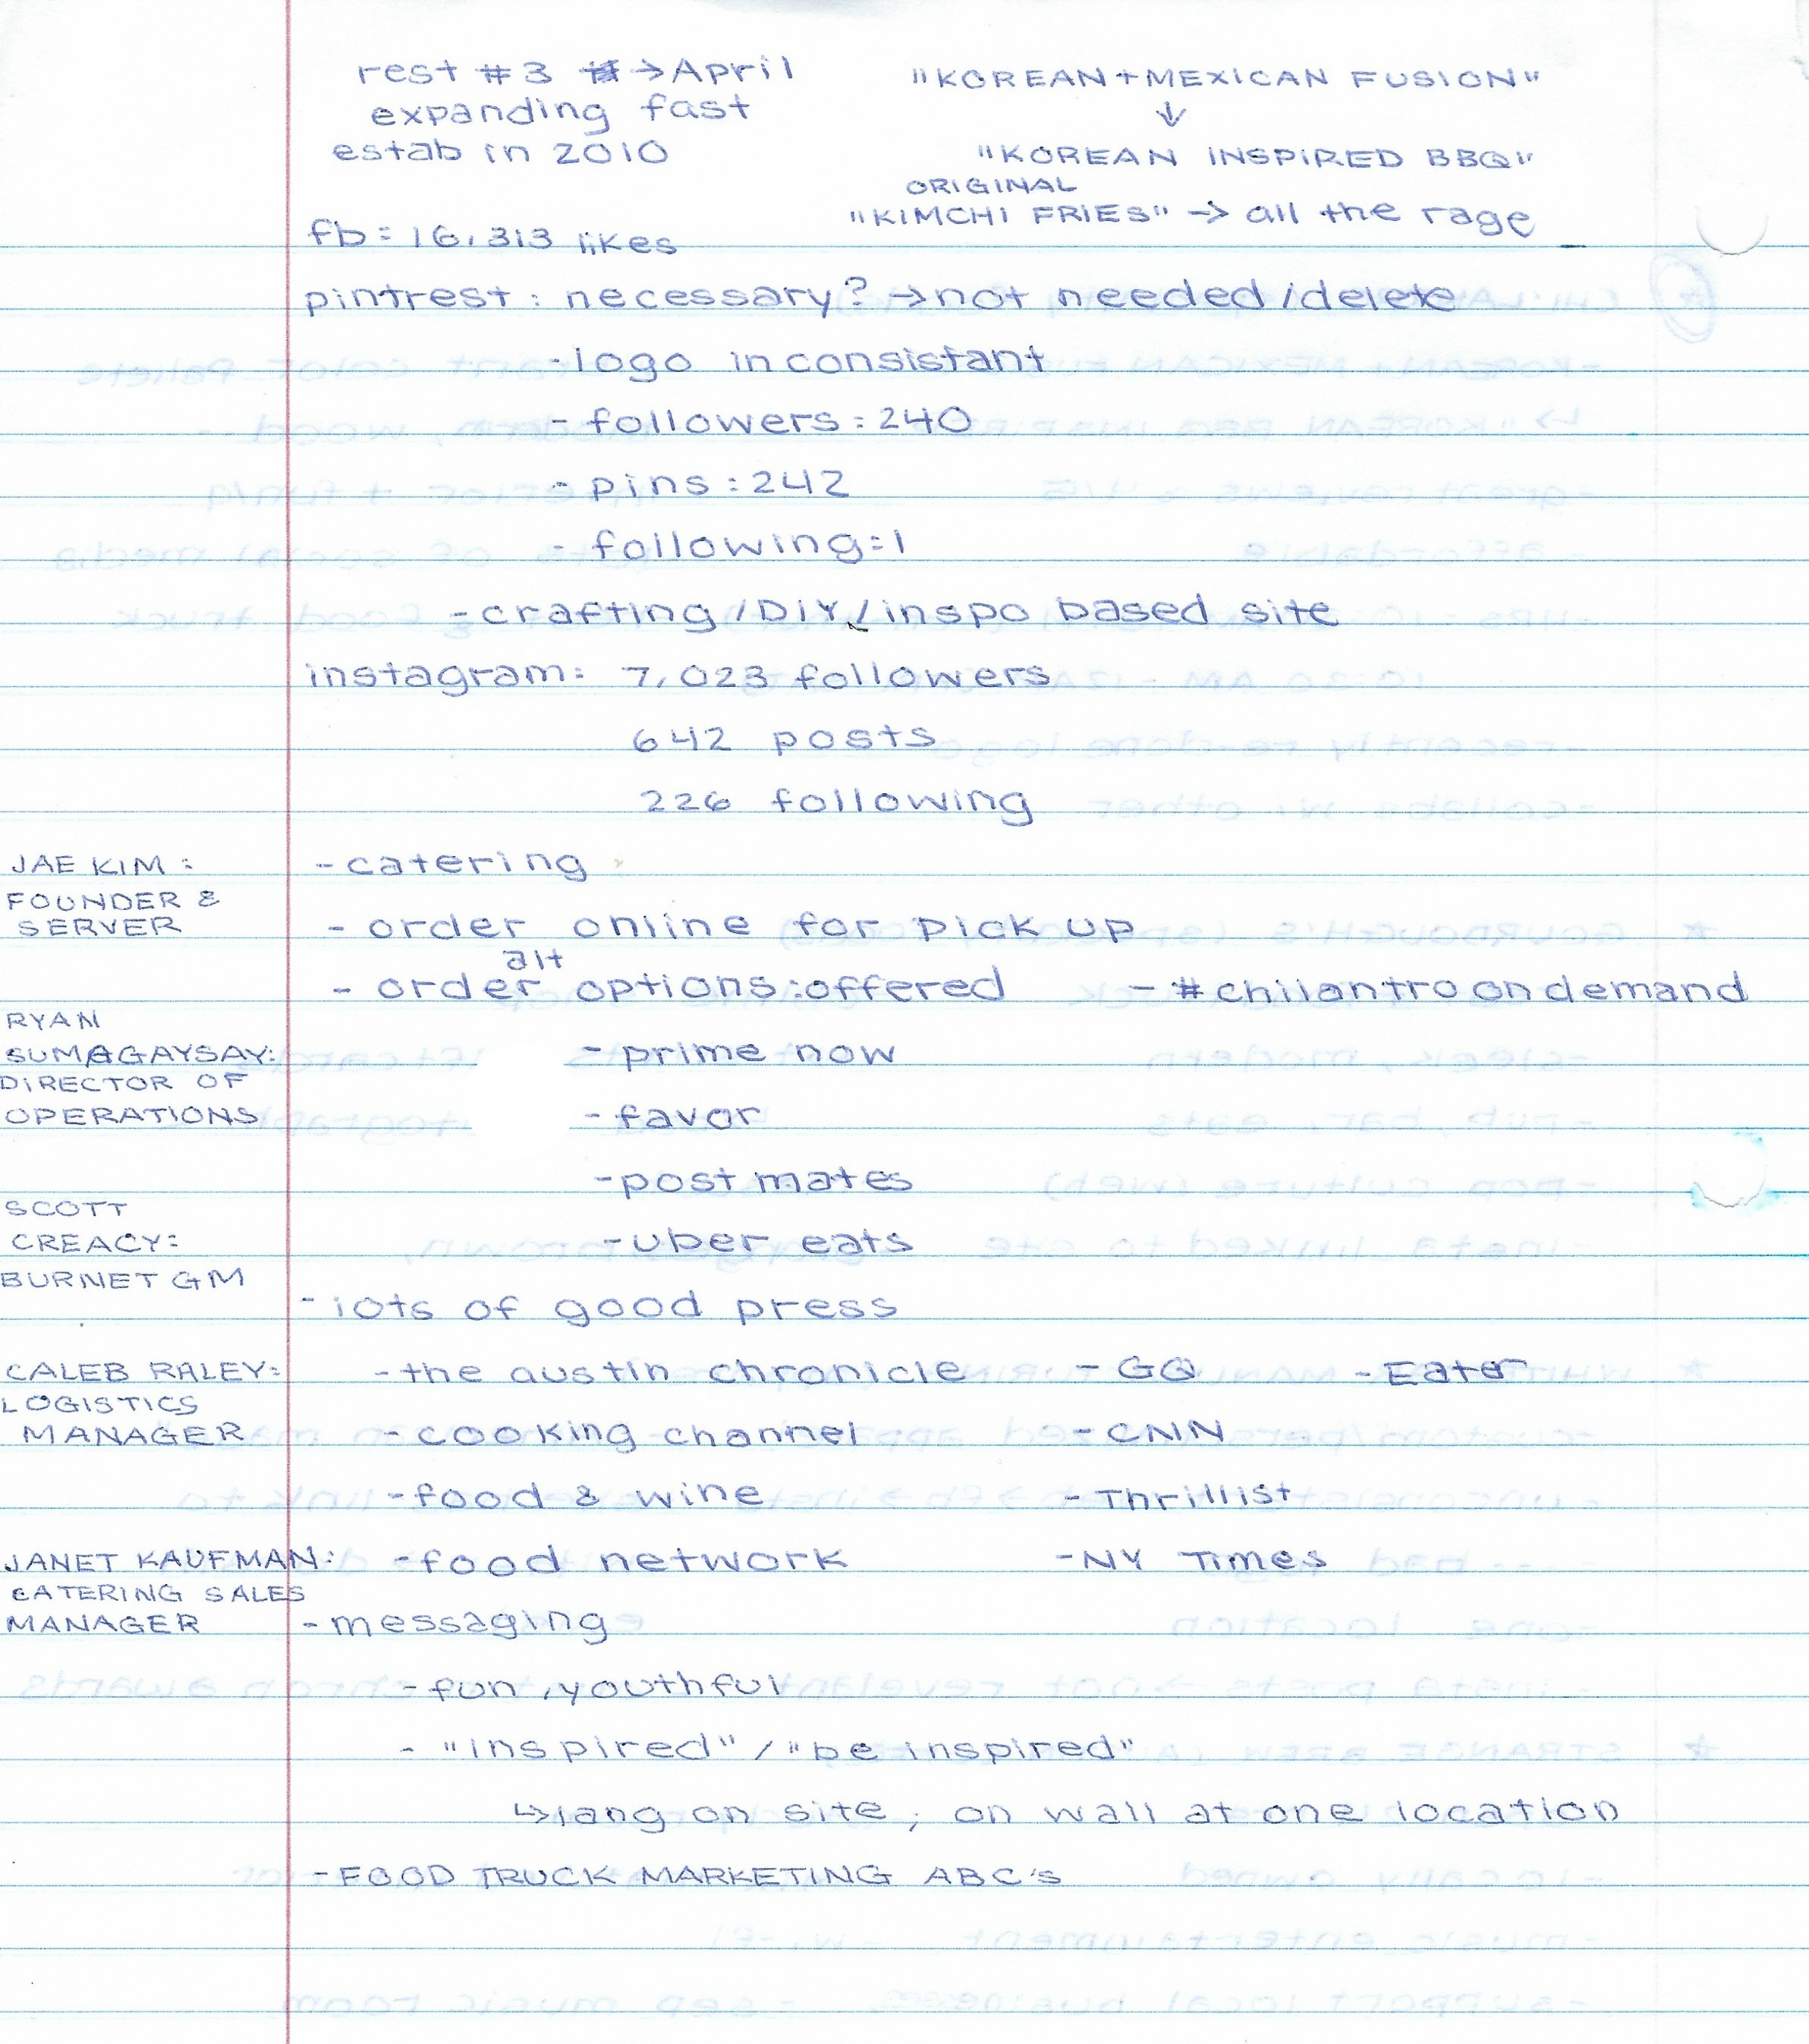 rest #3 → April
expanding fast
estab in 2010
"KOREAN + MEXICAN FUSION"
↓
"KOREAN INSPIRED BBQ"
ORIGINAL
"KIMCHI FRIES" → all the rage
fb = 16,313 likes
pintrest : necessary? → not needed/delete
- logo inconsistant
- followers : 240
- pins : 242
- following = 1
- crafting / DIY / inspo based site
instagram: 7,023 followers
642 posts
226 following
JAE KIM :
FOUNDER &
SERVER
- catering
- order online for pick up
alt
- order options : offered - #chilantroondemand
RYAN
SUMAGAYSAY:
DIRECTOR OF
OPERATIONS
- prime now
- favor
- post mates
- uber eats
SCOTT
CREACY:
BURNET GM
- lots of good press
CALEB RALEY:
LOGISTICS
MANAGER
- the austin chronicle - GQ - Eater
- cooking channel - CNN
- food & wine - Thrillist
JANET KAUFMAN:
CATERING SALES
MANAGER
- food network - NY Times
- messaging
- fun, youthful
- "inspired" / "be inspired"
↳ lang on site, on wall at one location
- FOOD TRUCK MARKETING ABC's